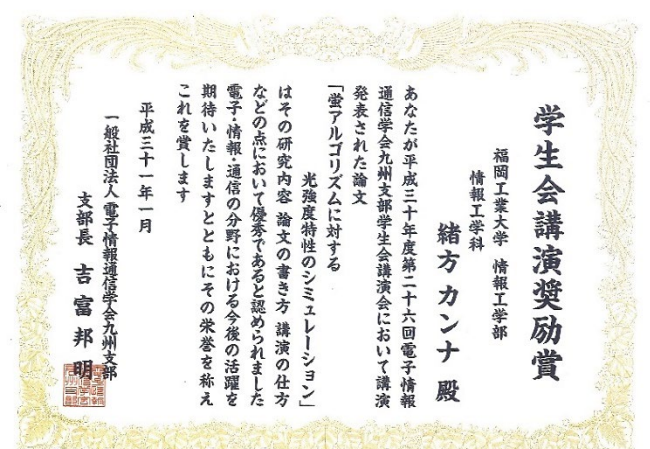 学生会講演奨励賞
福岡工業大学 情報工学部
情報工学科
緒方カンナ 殿
あなたが平成三十年度第二十六回電子情報
通信学会九州支部学生会講演会において講演
発表された論文
「蛍アルゴリズムに対する
光強度特性のシミュレーション」
はその研究内容 論文の書き方 講演の仕方
などの点において優秀であると認められました
電子・情報・通信の分野における今後の活躍を
期待いたしますとともにその栄誉を称え
これを賞します
平成三十一年一月
一般社団法人電子情報通信学会九州支部
支部長 吉富邦明